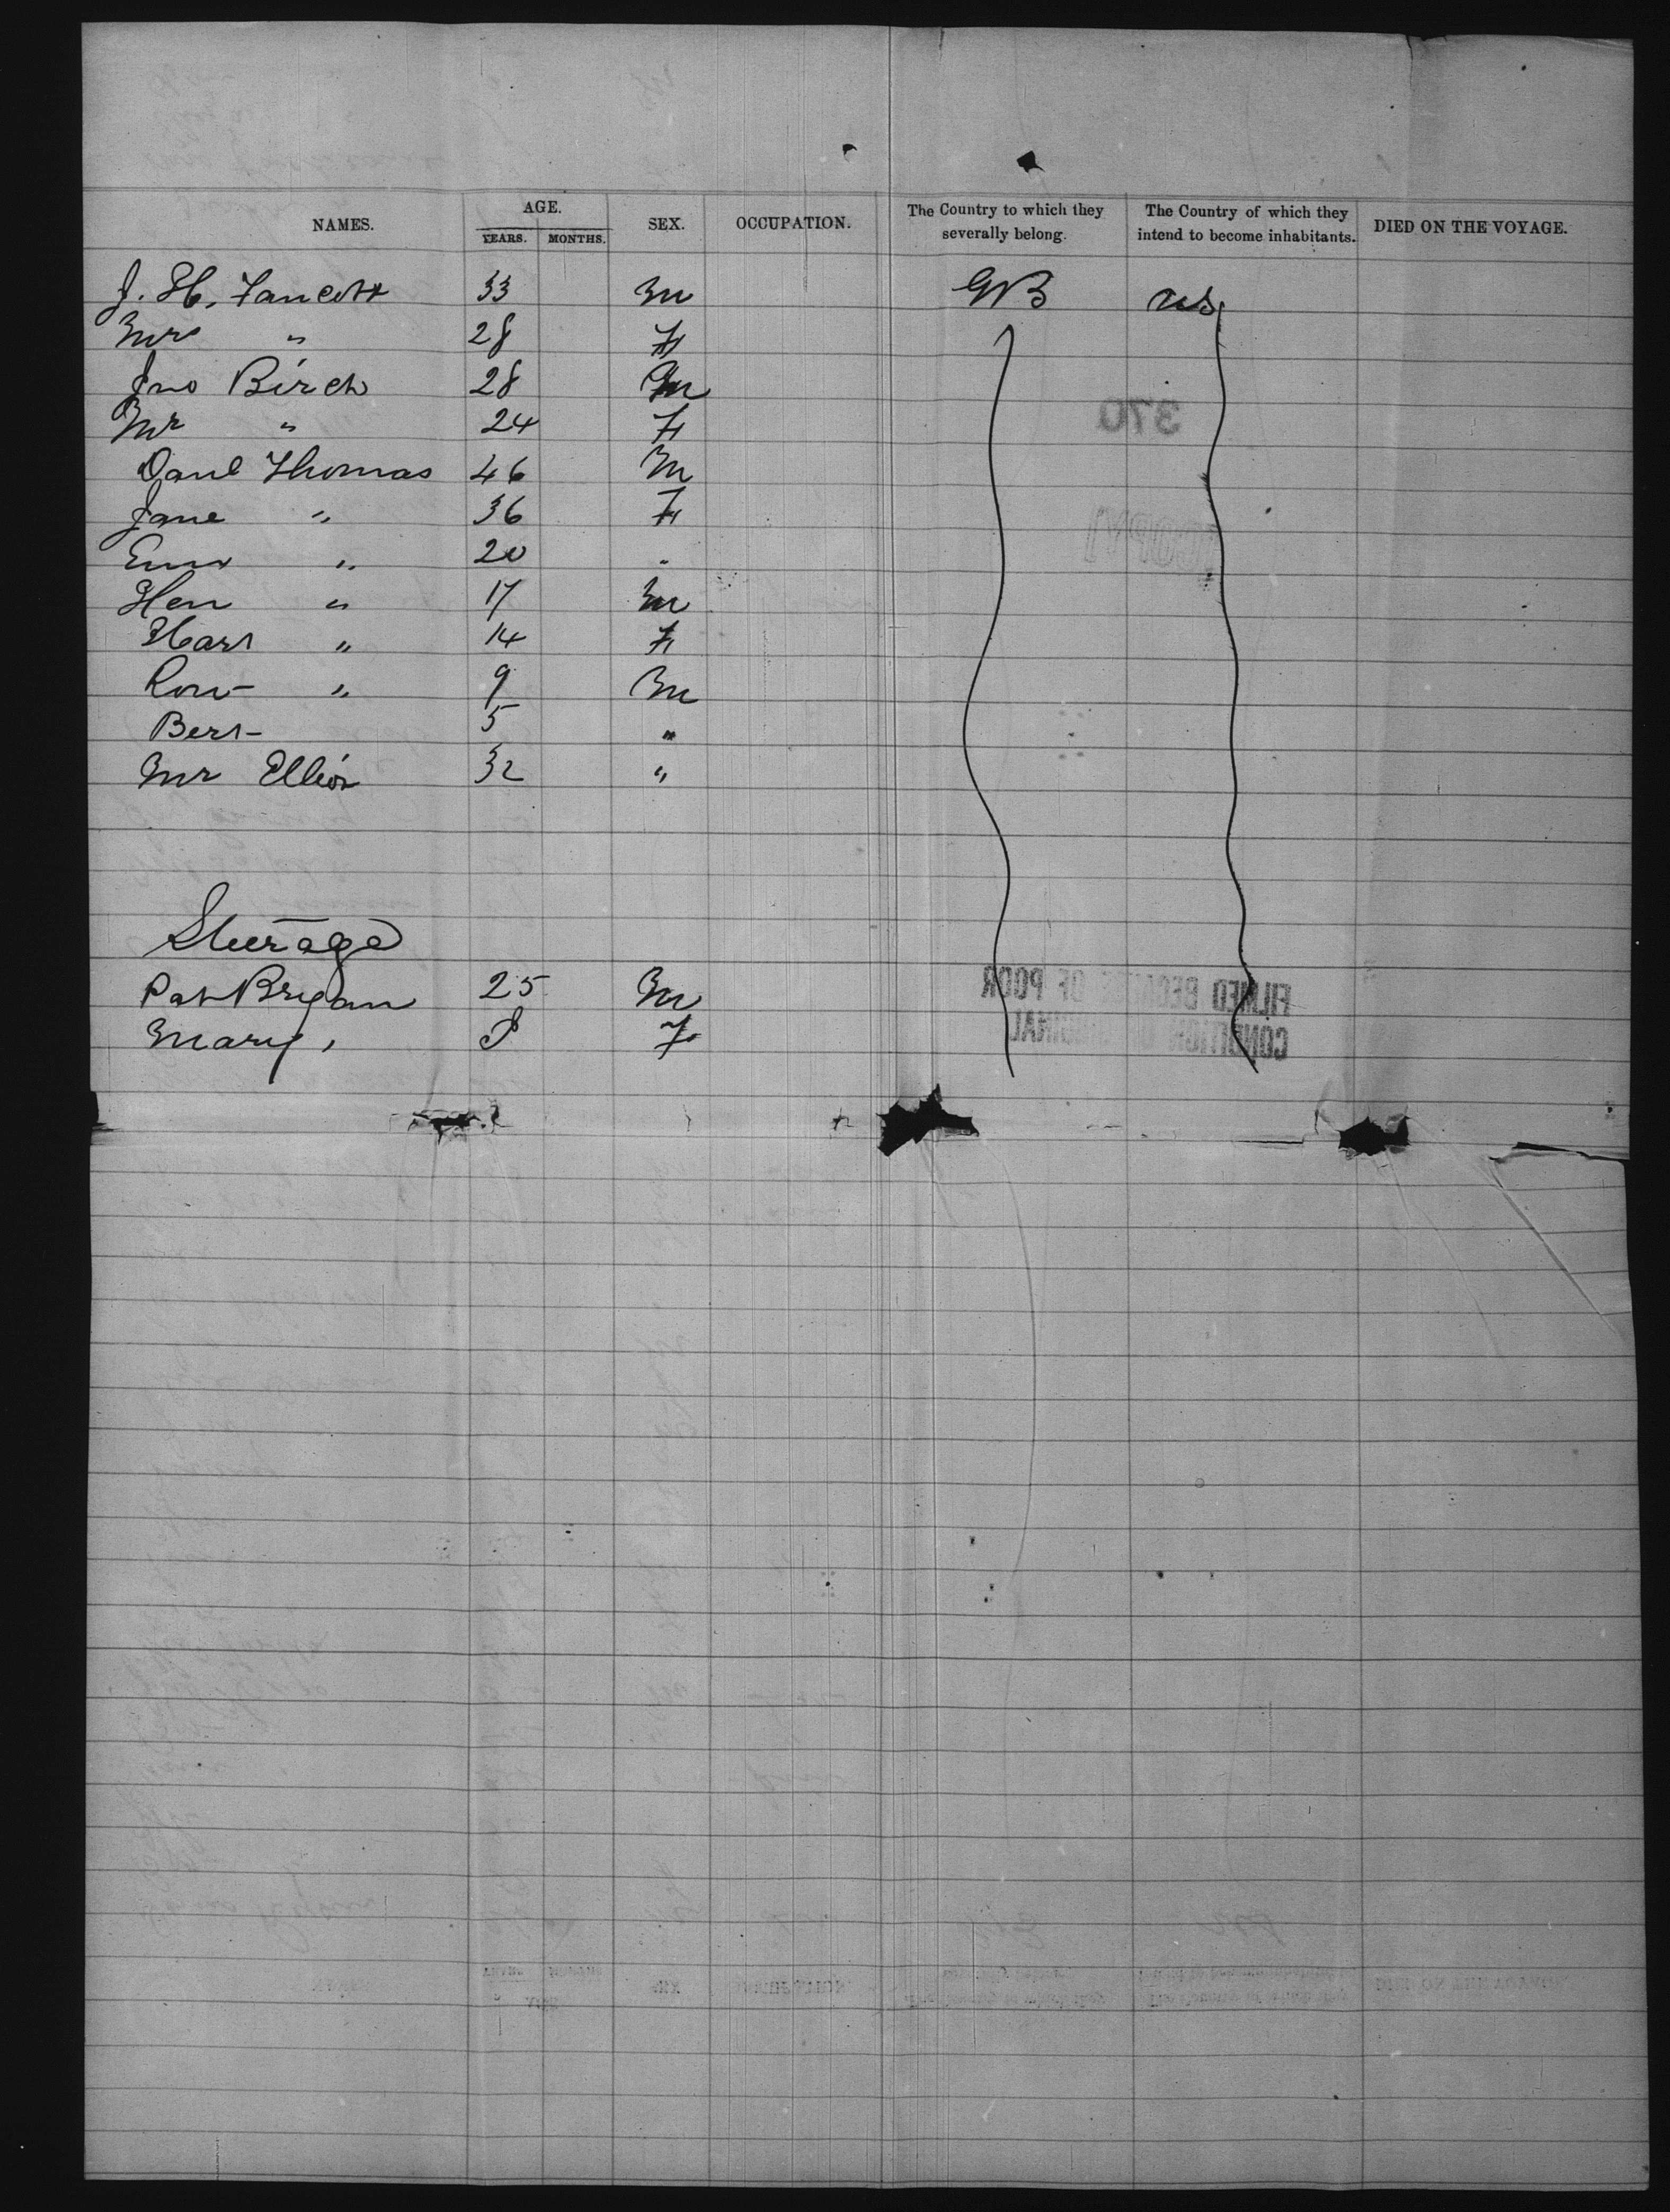 NAMES. AGE. YEARS. MONTHS. SEX. OCCUPATION. The Country to which they severally belong. The Country of which they intend to become inhabitants. DIED ON THE VOYAGE.
J. H. Fancott 33 M GB US
Mrs " 28 F
Jno Birch 28 M
Mr " 24 F
Danl Thomas 46 M
Jane " 36 F
" 20 "
Hen " 17 M
Harr " 14 F
" 9 M
Bert 5 "
Mr Ellior 32 "
Steerage
Pat Brygan 25 M
Mary " 8 F
370
[COPY]
FILMED BECAUSE OF POOR
CONDITION OF ORIGINAL